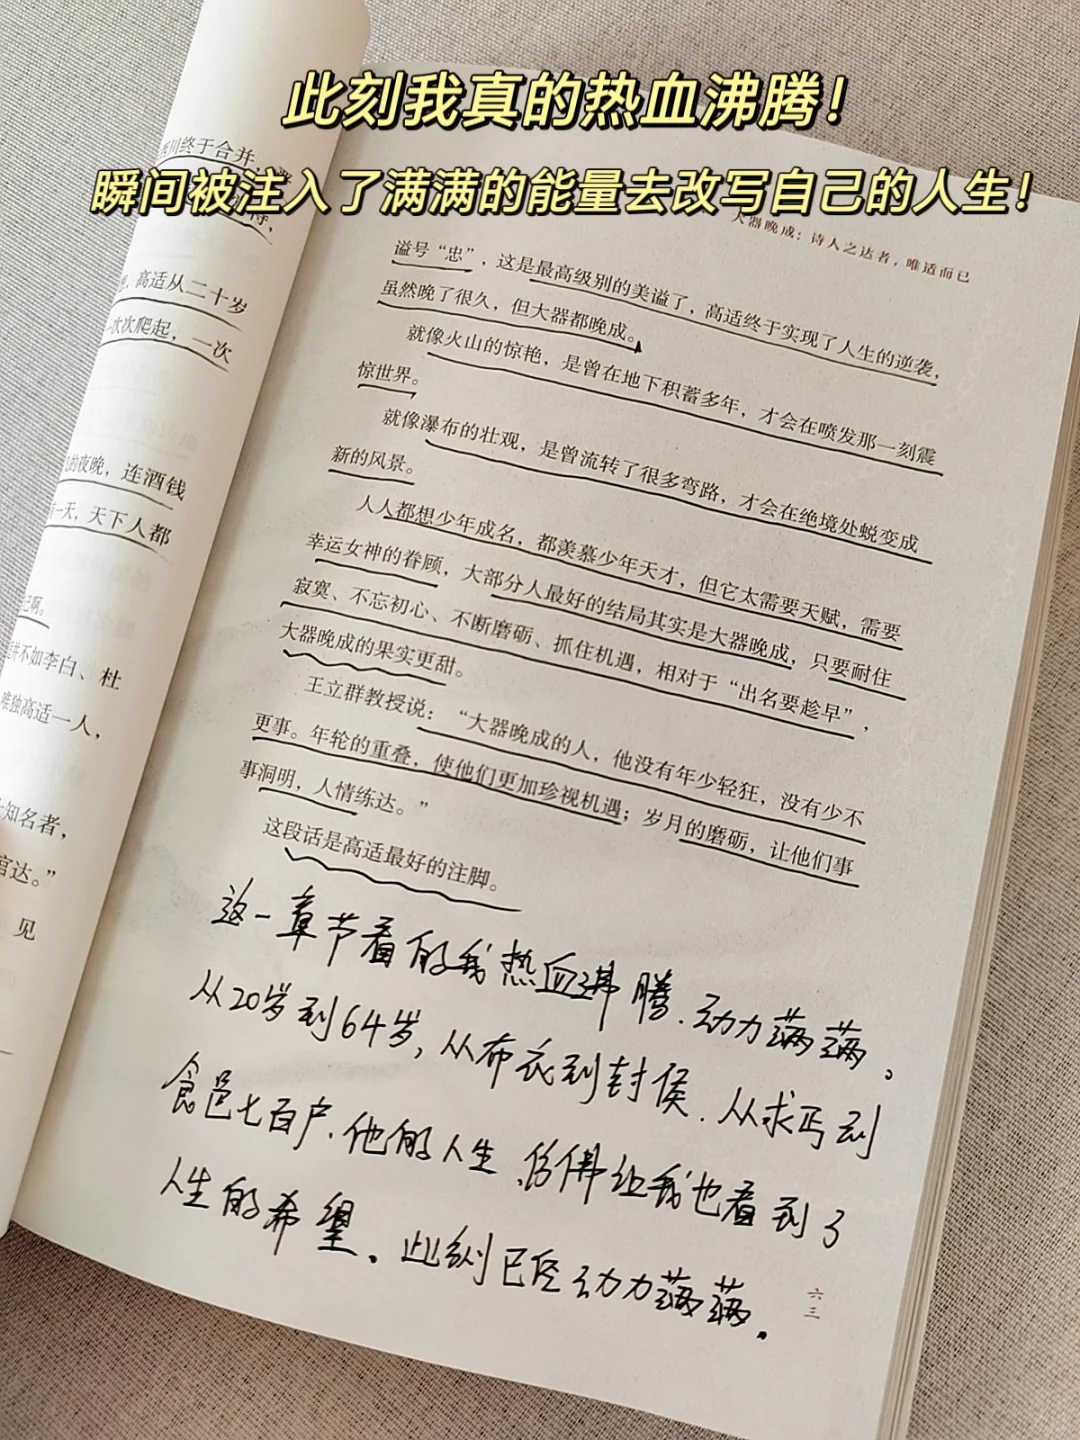 此刻我真的热血沸腾！
瞬间被注入了满满的能量去改写自己的人生！
川终于合并，
高适从二十岁
次次爬起，一次
的夜晚，连酒钱
一天，天下人都
啊。
并不如李白、杜
唯独高适一人，
知名者，
官达。”
见
大器晚成：诗人之达者，唯适而已
谥号“忠”，这是最高级别的美谥了，高适终于实现了人生的逆袭，
虽然晚了很久，但大器都晚成。
就像火山的惊艳，是曾在地下积蓄多年，才会在喷发那一刻震
惊世界。
就像瀑布的壮观，是曾流转了很多弯路，才会在绝境处蜕变成
新的风景。
人人都想少年成名，都羡慕少年天才，但它太需要天赋，需要
幸运女神的眷顾，大部分人最好的结局其实是大器晚成，只要耐住
寂寞、不忘初心、不断磨砺、抓住机遇，相对于“出名要趁早”，
大器晚成的果实更甜。
王立群教授说：“大器晚成的人，他没有年少轻狂，没有少不
更事。年轮的重叠，使他们更加珍视机遇；岁月的磨砺，让他们事
事洞明，人情练达。”
这段话是高适最好的注脚。
这一章节看的我热血沸腾、动力满满。
从20岁到64岁，从布衣到封侯、从求丐到
食邑七百户、他的人生、仿佛给我也看到了
人生的希望。此刻已经动力满满。
六三